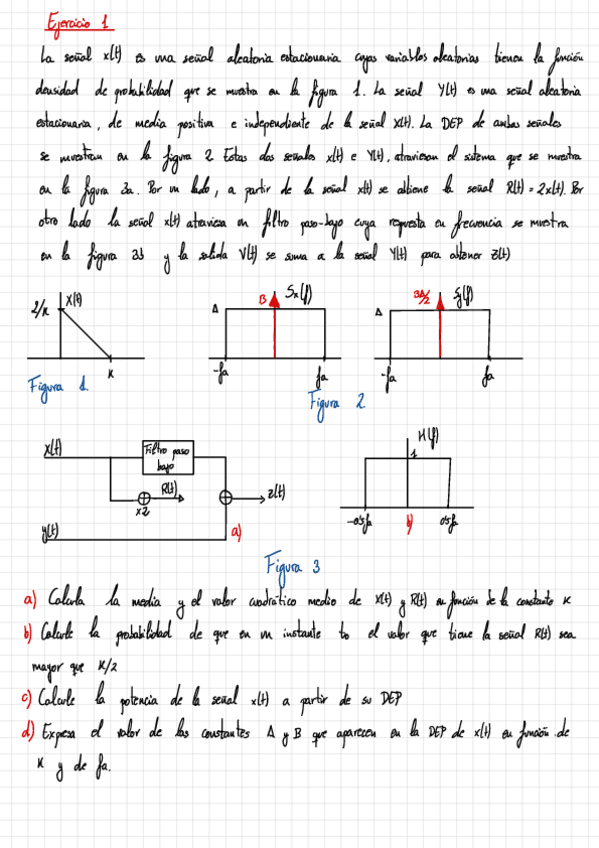 Ejercicio 1
La señal x(t) es una señal aleatoria estacionaria cuyas variables aleatorias tienen la función
densidad de probabilidad que se muestra en la figura 1. La señal Y(t) es una señal aleatoria
estacionaria, de media positiva e independiente de la señal X(t). La DEP de ambas señales
se muestran en la figura 2. Estas dos señales x(t) e Y(t), atraviesan el sistema que se muestra
en la figura 3a. Por un lado, a partir de la señal x(t) se obtiene la señal R(t) = 2x(t). Por
otro lado la señal x(t) atraviesa un filtro paso-bajo cuya repuesta en frecuencia se muestra
en la figura 3b y la salida V(t) se suma a la señal Y(t) para obtener z(t)
2/k X(t)
k
Figura 1.
A B Sx(f)
-fa fa
A 3A/2 Sy(f)
-fa fa
Figura 2
X(t) Filtro paso bajo
R(t) z(t)
x2
y(t) a)
H(f)
1
-0'5fa b) 0'5fa
Figura 3
a) Calcula la media y el valor cuadrático medio de X(t) y R(t) en función de la constante K
b) Calcule la probabilidad de que en un instante to el valor que tiene la señal R(t) sea
mayor que K/2
c) Calcule la potencia de la señal x(t) a partir de su DEP
d) Expresa el valor de las constantes A y B que aparecen en la DEP de x(t) en función de
K y de fa.